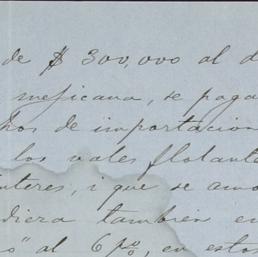 de $ 300,000 al d
mejicana, se paga
hos de importacion
los vales flotante
nteres, i que se amo
diera tambien en
o" al 6 p%, en estos